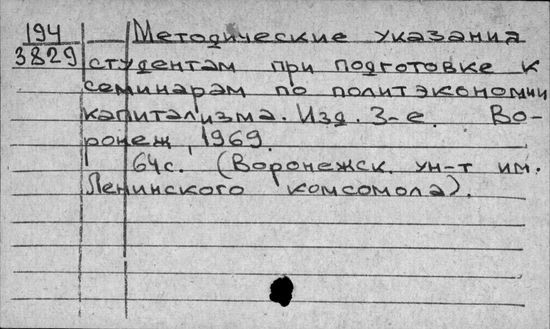 194
3829
— Методические указания
студентам при подготовке к
семинарам по политэкономии
капитализма. Изд. 3-е. Во-
ронеж, 1969.
64с. (Воронежск. ун-т им.
Ленинского комсомола).